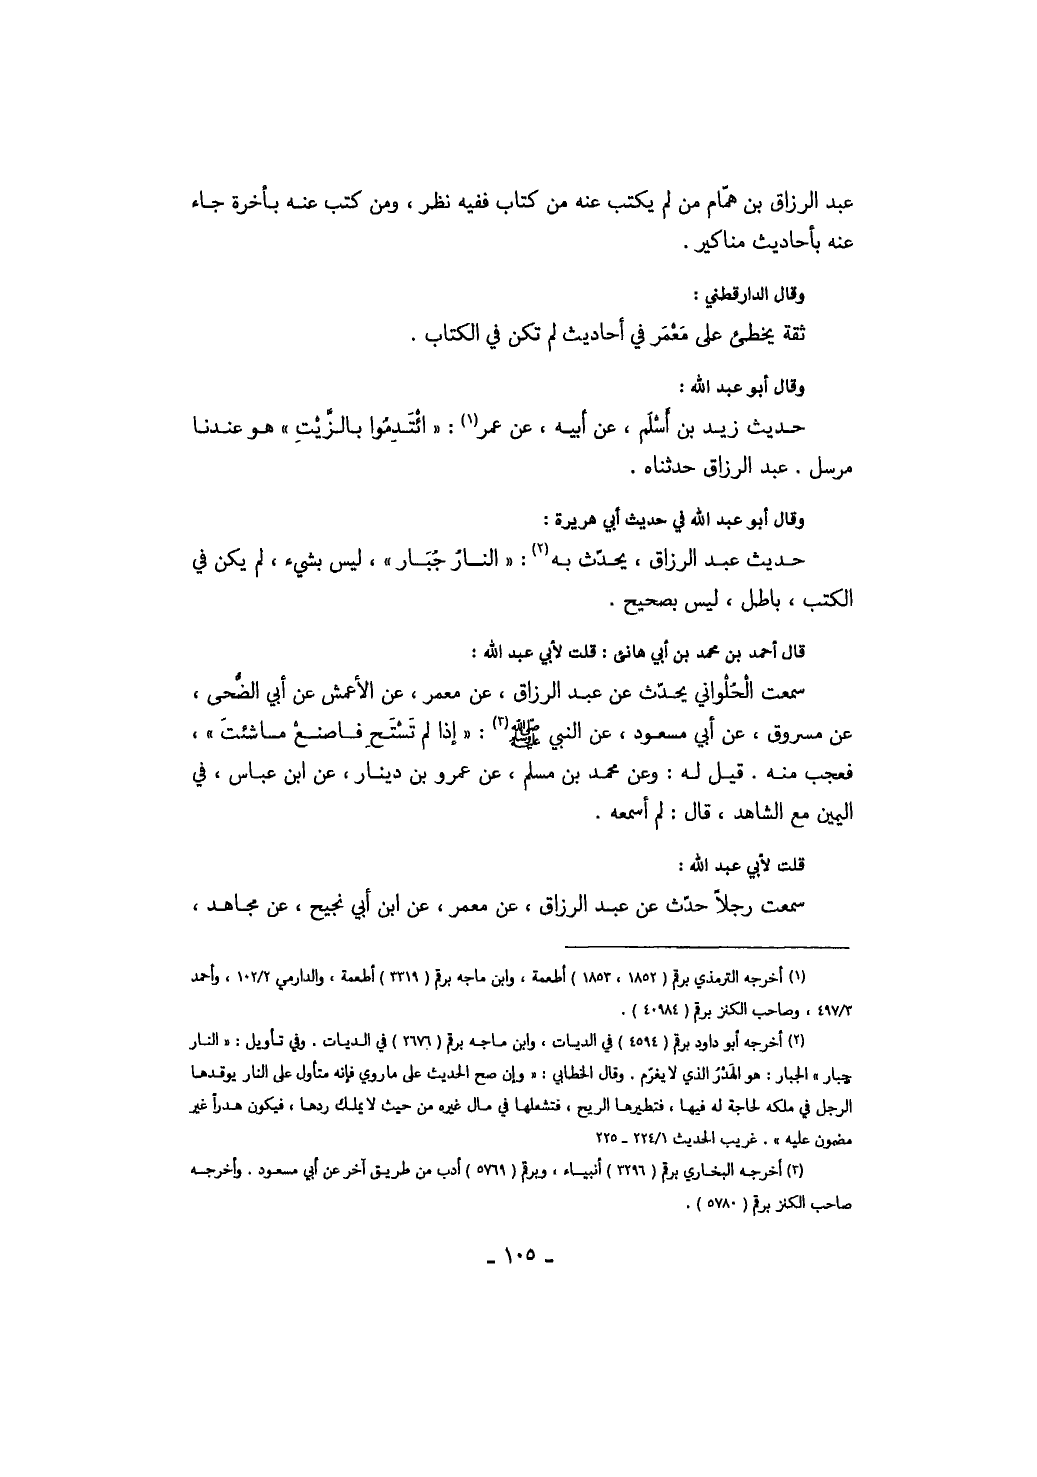 عبد الرزاق بن همّام من لم يكتب عنه من كتاب ففيه نظر ، ومن كتب عنه بأخرة جاء
عنه بأحاديث مناكير .
وقال الدارقطني :
ثقة يخطئ على مَعْمَر في أحاديث لم تكن في الكتاب .
وقال أبو عبد الله :
حديث زيد بن أَسْلَم ، عن أبيه ، عن عمر(١) : « ائْتَدِمُوا بالزَّيْتِ » هو عندنا
مرسل . عبد الرزاق حدثناه .
وقال أبو عبد الله في حديث أبي هريرة :
حديث عبد الرزاق ، يحدّث به(٢) : « النارُ جُبَار » ، ليس بشيء ، لم يكن في
الكتب ، باطل ، ليس بصحيح .
قال أحمد بن محمد بن أبي هانئ : قلت لأبي عبد الله :
سمعت الْحُلْواني يحدّث عن عبد الرزاق ، عن معمر ، عن الأعمش عن أبي الضُّحى ،
عن مسروق ، عن أبي مسعود ، عن النبي ﷺ(٣) : « إذا لم تَسْتَحِ فاصنعْ ماشئتَ » ،
فعجب منه . قيل له : وعن محمد بن مسلم ، عن عمرو بن دينار ، عن ابن عباس ، في
اليمين مع الشاهد ، قال : لم أسمعه .
قلت لأبي عبد الله :
سمعت رجلاً حدّث عن عبد الرزاق ، عن معمر ، عن ابن أبي نجيح ، عن مجاهد ،
(١) أخرجه الترمذي برقم ( ١٨٥٢ ، ١٨٥٣ ) أطعمة ، وابن ماجه برقم ( ٣٣١٩ ) أطعمة ، والدارمي ١٠٢/٢ ، وأحمد
٤٩٧/٣ ، وصاحب الكنز برقم ( ٤٠٩٨٤ ) .
(٢) أخرجه أبو داود برقم ( ٤٥٩٤ ) في الديات ، وابن ماجه برقم ( ٢٦٧٦ ) في الديات . وفي تأويل : « النار
جبار » الجبار : هو الهَدْرُ الذي لا يغرّم . وقال الخطابي : « وإن صح الحديث على ماروي فإنه متأول على النار يوقدها
الرجل في ملكه لحاجة له فيها ، فتطيرها الريح ، فتشعلها في مال غيره من حيث لا يملك ردها ، فيكون هدراً غير
مضمون عليه » . غريب الحديث ٢٢٤/١ ـ ٢٢٥
(٣) أخرجه البخاري برقم ( ٣٢٩٦ ) أنبياء ، وبرقم ( ٥٧٦٩ ) أدب من طريق آخر عن أبي مسعود . وأخرجه
صاحب الكنز برقم ( ٥٧٨٠ ) .
ـ ١٠٥ ـ